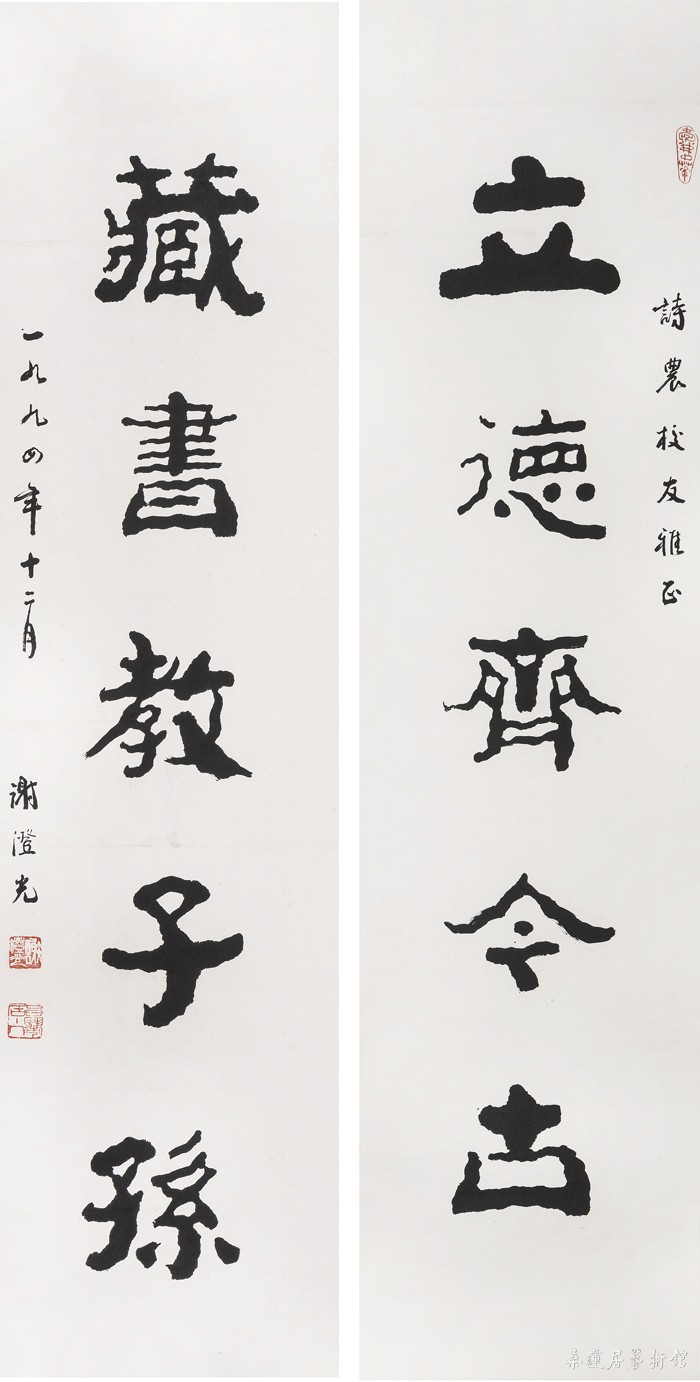 詩農校友雅正
立德齊今古
藏書教子孫
一九九四年十二月 謝澄光
桑蓮居藝術館